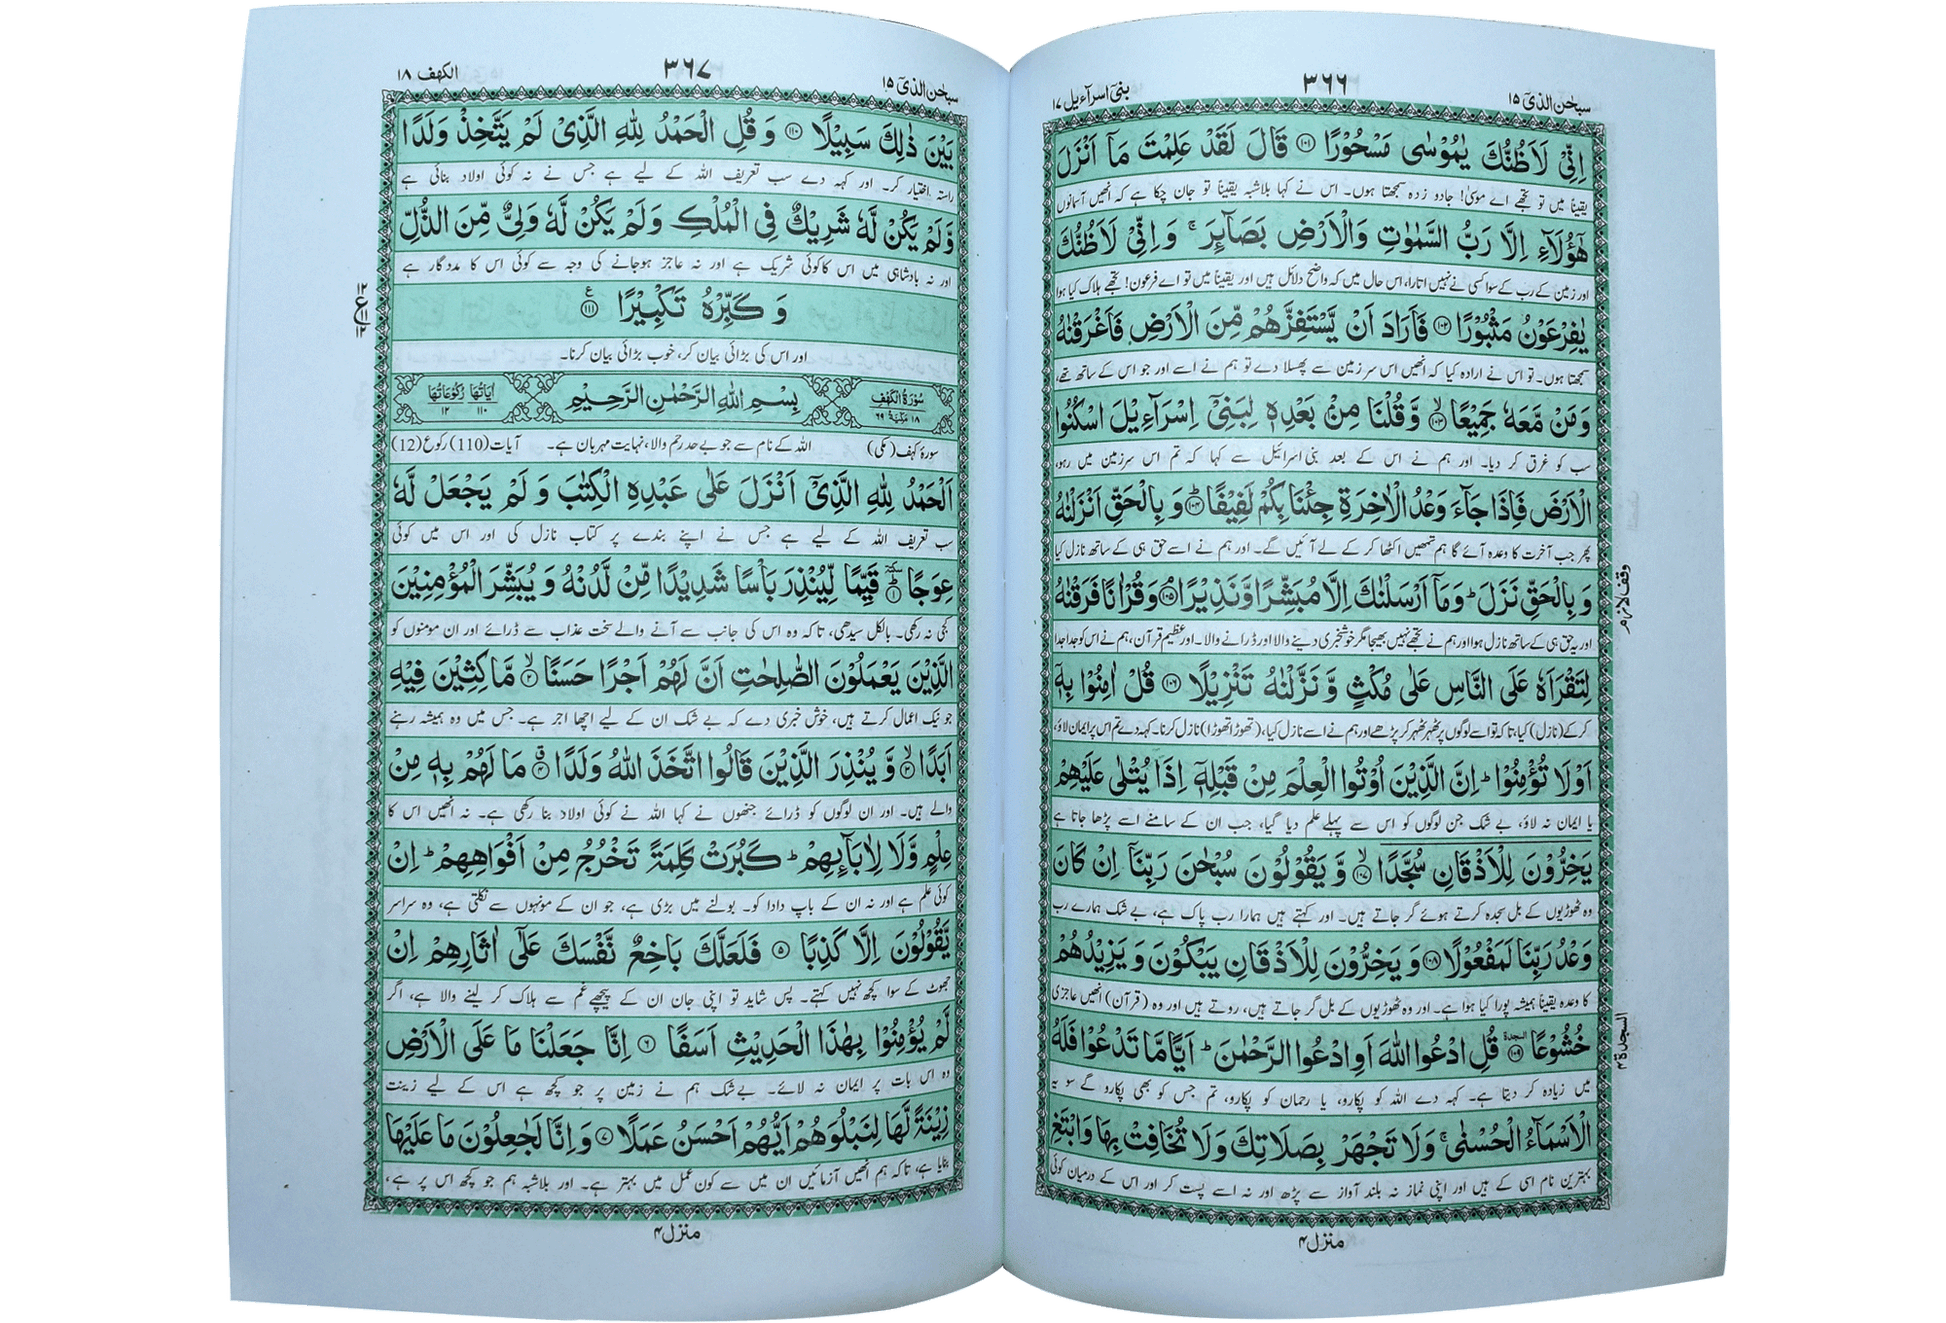 سبحٰن الذیٓ ۱۵
۳۶۶
بنیٓ اسرآءیل ۱۷
اِنِّیْ لَاَظُنُّكَ یٰمُوْسٰى مَسْحُوْرًا ۝۱۰۱ قَالَ لَقَدْ عَلِمْتَ مَاۤ اَنْزَلَ
یقیناً میں تو تجھے اے موسیٰ! جادو زدہ سمجھتا ہوں۔ اس نے کہا بلاشبہ یقیناً تو جان چکا ہے کہ انھیں آسمانوں
هٰۤؤُلَآءِ اِلَّا رَبُّ السَّمٰوٰتِ وَالْاَرْضِ بَصَآىِٕرَ ۚ وَ اِنِّیْ لَاَظُنُّكَ
اور زمین کے رب کے سوا کسی نے نہیں اتارا، اس حال میں کہ واضح دلائل ہیں اور یقیناً میں تو اے فرعون! تجھے ہلاک کیا ہوا
یٰفِرْعَوْنُ مَثْبُوْرًا ۝۱۰۲ فَاَرَادَ اَنْ یَّسْتَفِزَّهُمْ مِّنَ الْاَرْضِ فَاَغْرَقْنٰهُ
سمجھتا ہوں۔ تو اس نے ارادہ کیا کہ انھیں اس سرزمین سے پھسلا دے تو ہم نے اسے اور جو اس کے ساتھ تھے،
وَمَنْ مَّعَهٗ جَمِیْعًا ۝۱۰۳ۙ وَّقُلْنَا مِنْۢ بَعْدِهٖ لِبَنِیْۤ اِسْرَآءِیْلَ اسْكُنُوا
سب کو غرق کر دیا۔ اور ہم نے اس کے بعد بنی اسرائیل سے کہا کہ تم اس سرزمین میں رہو،
الْاَرْضَ فَاِذَا جَآءَ وَعْدُ الْاٰخِرَةِ جِئْنَا بِكُمْ لَفِیْفًا ۝۱۰۴ؕ وَ بِالْحَقِّ اَنْزَلْنٰهُ
پھر جب آخرت کا وعدہ آئے گا ہم تمھیں اکٹھا کر کے لے آئیں گے۔ اور ہم نے اسے حق ہی کے ساتھ نازل کیا
وَ بِالْحَقِّ نَزَلَ ؕ وَمَاۤ اَرْسَلْنٰكَ اِلَّا مُبَشِّرًا وَّنَذِیْرًا ۝۱۰۵ۘ وَقُرْاٰنًا فَرَقْنٰهُ
اور یہ حق ہی کے ساتھ نازل ہوا اور ہم نے تجھے نہیں بھیجا مگر خوشخبری دینے والا اور ڈرانے والا۔ اور عظیم قرآن، ہم نے اس کو جدا جدا
لِتَقْرَاَهٗ عَلَى النَّاسِ عَلٰى مُكْثٍ وَّ نَزَّلْنٰهُ تَنْزِیْلًا ۝۱۰۶ قُلْ اٰمِنُوْا بِهٖۤ
کر کے (نازل) کیا، تاکہ تو اسے لوگوں پر ٹھہر ٹھہر کر پڑھے اور ہم نے اسے نازل کیا، (تھوڑا تھوڑا) نازل کرنا۔ کہہ دے تم اس پر ایمان لاؤ،
اَوْ لَا تُؤْمِنُوْا ؕ اِنَّ الَّذِیْنَ اُوْتُوا الْعِلْمَ مِنْ قَبْلِهٖۤ اِذَا یُتْلٰى عَلَیْهِمْ
یا ایمان نہ لاؤ، بے شک جن لوگوں کو اس سے پہلے علم دیا گیا، جب ان کے سامنے اسے پڑھا جاتا ہے
یَخِرُّوْنَ لِلْاَذْقَانِ سُجَّدًا ۝۱۰۷ۙ وَّ یَقُوْلُوْنَ سُبْحٰنَ رَبِّنَاۤ اِنْ كَانَ
وہ ٹھوڑیوں کے بل سجدہ کرتے ہوئے گر جاتے ہیں۔ اور کہتے ہیں ہمارا رب پاک ہے، بے شک ہمارے رب
وَعْدُ رَبِّنَا لَمَفْعُوْلًا ۝۱۰۸ وَ یَخِرُّوْنَ لِلْاَذْقَانِ یَبْكُوْنَ وَ یَزِیْدُهُمْ
کا وعدہ یقیناً ہمیشہ پورا کیا ہوا ہے۔ اور وہ ٹھوڑیوں کے بل گر جاتے ہیں، روتے ہیں اور وہ (قرآن) انھیں عاجزی
خُشُوْعًا ۝۱۰۹ السجدة قُلِ ادْعُوا اللّٰهَ اَوِ ادْعُوا الرَّحْمٰنَ ؕ اَیًّا مَّا تَدْعُوْا فَلَهُ
میں زیادہ کر دیتا ہے۔ کہہ دے اللہ کو پکارو، یا رحمان کو پکارو، تم جس کو بھی پکارو گے سو یہ
الْاَسْمَآءُ الْحُسْنٰى ۚ وَلَا تَجْهَرْ بِصَلَاتِكَ وَلَا تُخَافِتْ بِهَا وَابْتَغِ
بہترین نام اسی کے ہیں اور اپنی نماز نہ بلند آواز سے پڑھ اور نہ اسے پست کر اور اس کے درمیان کوئی
وقف لازم
السجدة ۴
منزل ۴
سبحٰن الذیٓ ۱۵
۳۶۷
الکهف ۱۸
بَیْنَ ذٰلِكَ سَبِیْلًا ۝۱۱۰ وَ قُلِ الْحَمْدُ لِلّٰهِ الَّذِیْ لَمْ یَتَّخِذْ وَلَدًا
راستہ اختیار کر۔ اور کہہ دے سب تعریف اللہ کے لیے ہے جس نے نہ کوئی اولاد بنائی ہے
وَّ لَمْ یَكُنْ لَّهٗ شَرِیْكٌ فِی الْمُلْكِ وَ لَمْ یَكُنْ لَّهٗ وَلِیٌّ مِّنَ الذُّلِّ
اور نہ بادشاہی میں اس کا کوئی شریک ہے اور نہ عاجز ہوجانے کی وجہ سے کوئی اس کا مددگار ہے
وَ كَبِّرْهُ تَكْبِیْرًا ۝۱۱۱ ع
اور اس کی بڑائی بیان کر، خوب بڑائی بیان کرنا۔
ع ۱۲ ۱۱ ۱۲
سُوْرَةُ الْكَهْفِ ۱۸ مَكِّیَّةٌ ۶۹
بِسْمِ اللّٰهِ الرَّحْمٰنِ الرَّحِیْمِ
اٰیَاتُهَا ۱۱۰ رُكُوْعَاتُهَا ۱۲
سورۂ کہف (مکی) اللہ کے نام سے جو بے حد رحم والا، نہایت مہربان ہے۔ آیات (110) رکوع (12)
اَلْحَمْدُ لِلّٰهِ الَّذِیْۤ اَنْزَلَ عَلٰى عَبْدِهِ الْكِتٰبَ وَ لَمْ یَجْعَلْ لَّهٗ
سب تعریف اللہ کے لیے ہے جس نے اپنے بندے پر کتاب نازل کی اور اس میں کوئی
عِوَجًا ۝۱ؕ سكتة قَیِّمًا لِّیُنْذِرَ بَاْسًا شَدِیْدًا مِّنْ لَّدُنْهُ وَ یُبَشِّرَ الْمُؤْمِنِیْنَ
کجی نہ رکھی۔ بالکل سیدھی، تاکہ وہ اس کی جانب سے آنے والے سخت عذاب سے ڈرائے اور ان مومنوں کو
الَّذِیْنَ یَعْمَلُوْنَ الصّٰلِحٰتِ اَنَّ لَهُمْ اَجْرًا حَسَنًا ۝۲ۙ مَّاكِثِیْنَ فِیْهِ
جو نیک اعمال کرتے ہیں، خوش خبری دے کہ بے شک ان کے لیے اچھا اجر ہے۔ جس میں وہ ہمیشہ رہنے
اَبَدًا ۝۳ۙ وَّ یُنْذِرَ الَّذِیْنَ قَالُوا اتَّخَذَ اللّٰهُ وَلَدًا ۝۴ۗ مَا لَهُمْ بِهٖ مِنْ
والے ہیں۔ اور ان لوگوں کو ڈرائے جنھوں نے کہا اللہ نے کوئی اولاد بنا رکھی ہے۔ نہ انھیں اس کا
عِلْمٍ وَّلَا لِاٰبَآىِٕهِمْ ؕ كَبُرَتْ كَلِمَةً تَخْرُجُ مِنْ اَفْوَاهِهِمْ ؕ اِنْ
کوئی علم ہے اور نہ ان کے باپ دادا کو۔ بولنے میں بڑی ہے، جو ان کے مونہوں سے نکلتی ہے، وہ سراسر
یَّقُوْلُوْنَ اِلَّا كَذِبًا ۝۵ فَلَعَلَّكَ بَاخِعٌ نَّفْسَكَ عَلٰۤى اٰثَارِهِمْ اِنْ
جھوٹ کے سوا کچھ نہیں کہتے۔ پس شاید تو اپنی جان ان کے پیچھے غم سے ہلاک کر لینے والا ہے، اگر
لَّمْ یُؤْمِنُوْا بِهٰذَا الْحَدِیْثِ اَسَفًا ۝۶ اِنَّا جَعَلْنَا مَا عَلَى الْاَرْضِ
وہ اس بات پر ایمان نہ لائے۔ بے شک ہم نے زمین پر جو کچھ ہے اس کے لیے زینت
زِیْنَةً لَّهَا لِنَبْلُوَهُمْ اَیُّهُمْ اَحْسَنُ عَمَلًا ۝۷ وَ اِنَّا لَجٰعِلُوْنَ مَا عَلَیْهَا
بنایا ہے، تاکہ ہم انھیں آزمائیں ان میں سے کون عمل میں بہتر ہے۔ اور بلاشبہ ہم جو کچھ اس پر ہے،
منزل ۴